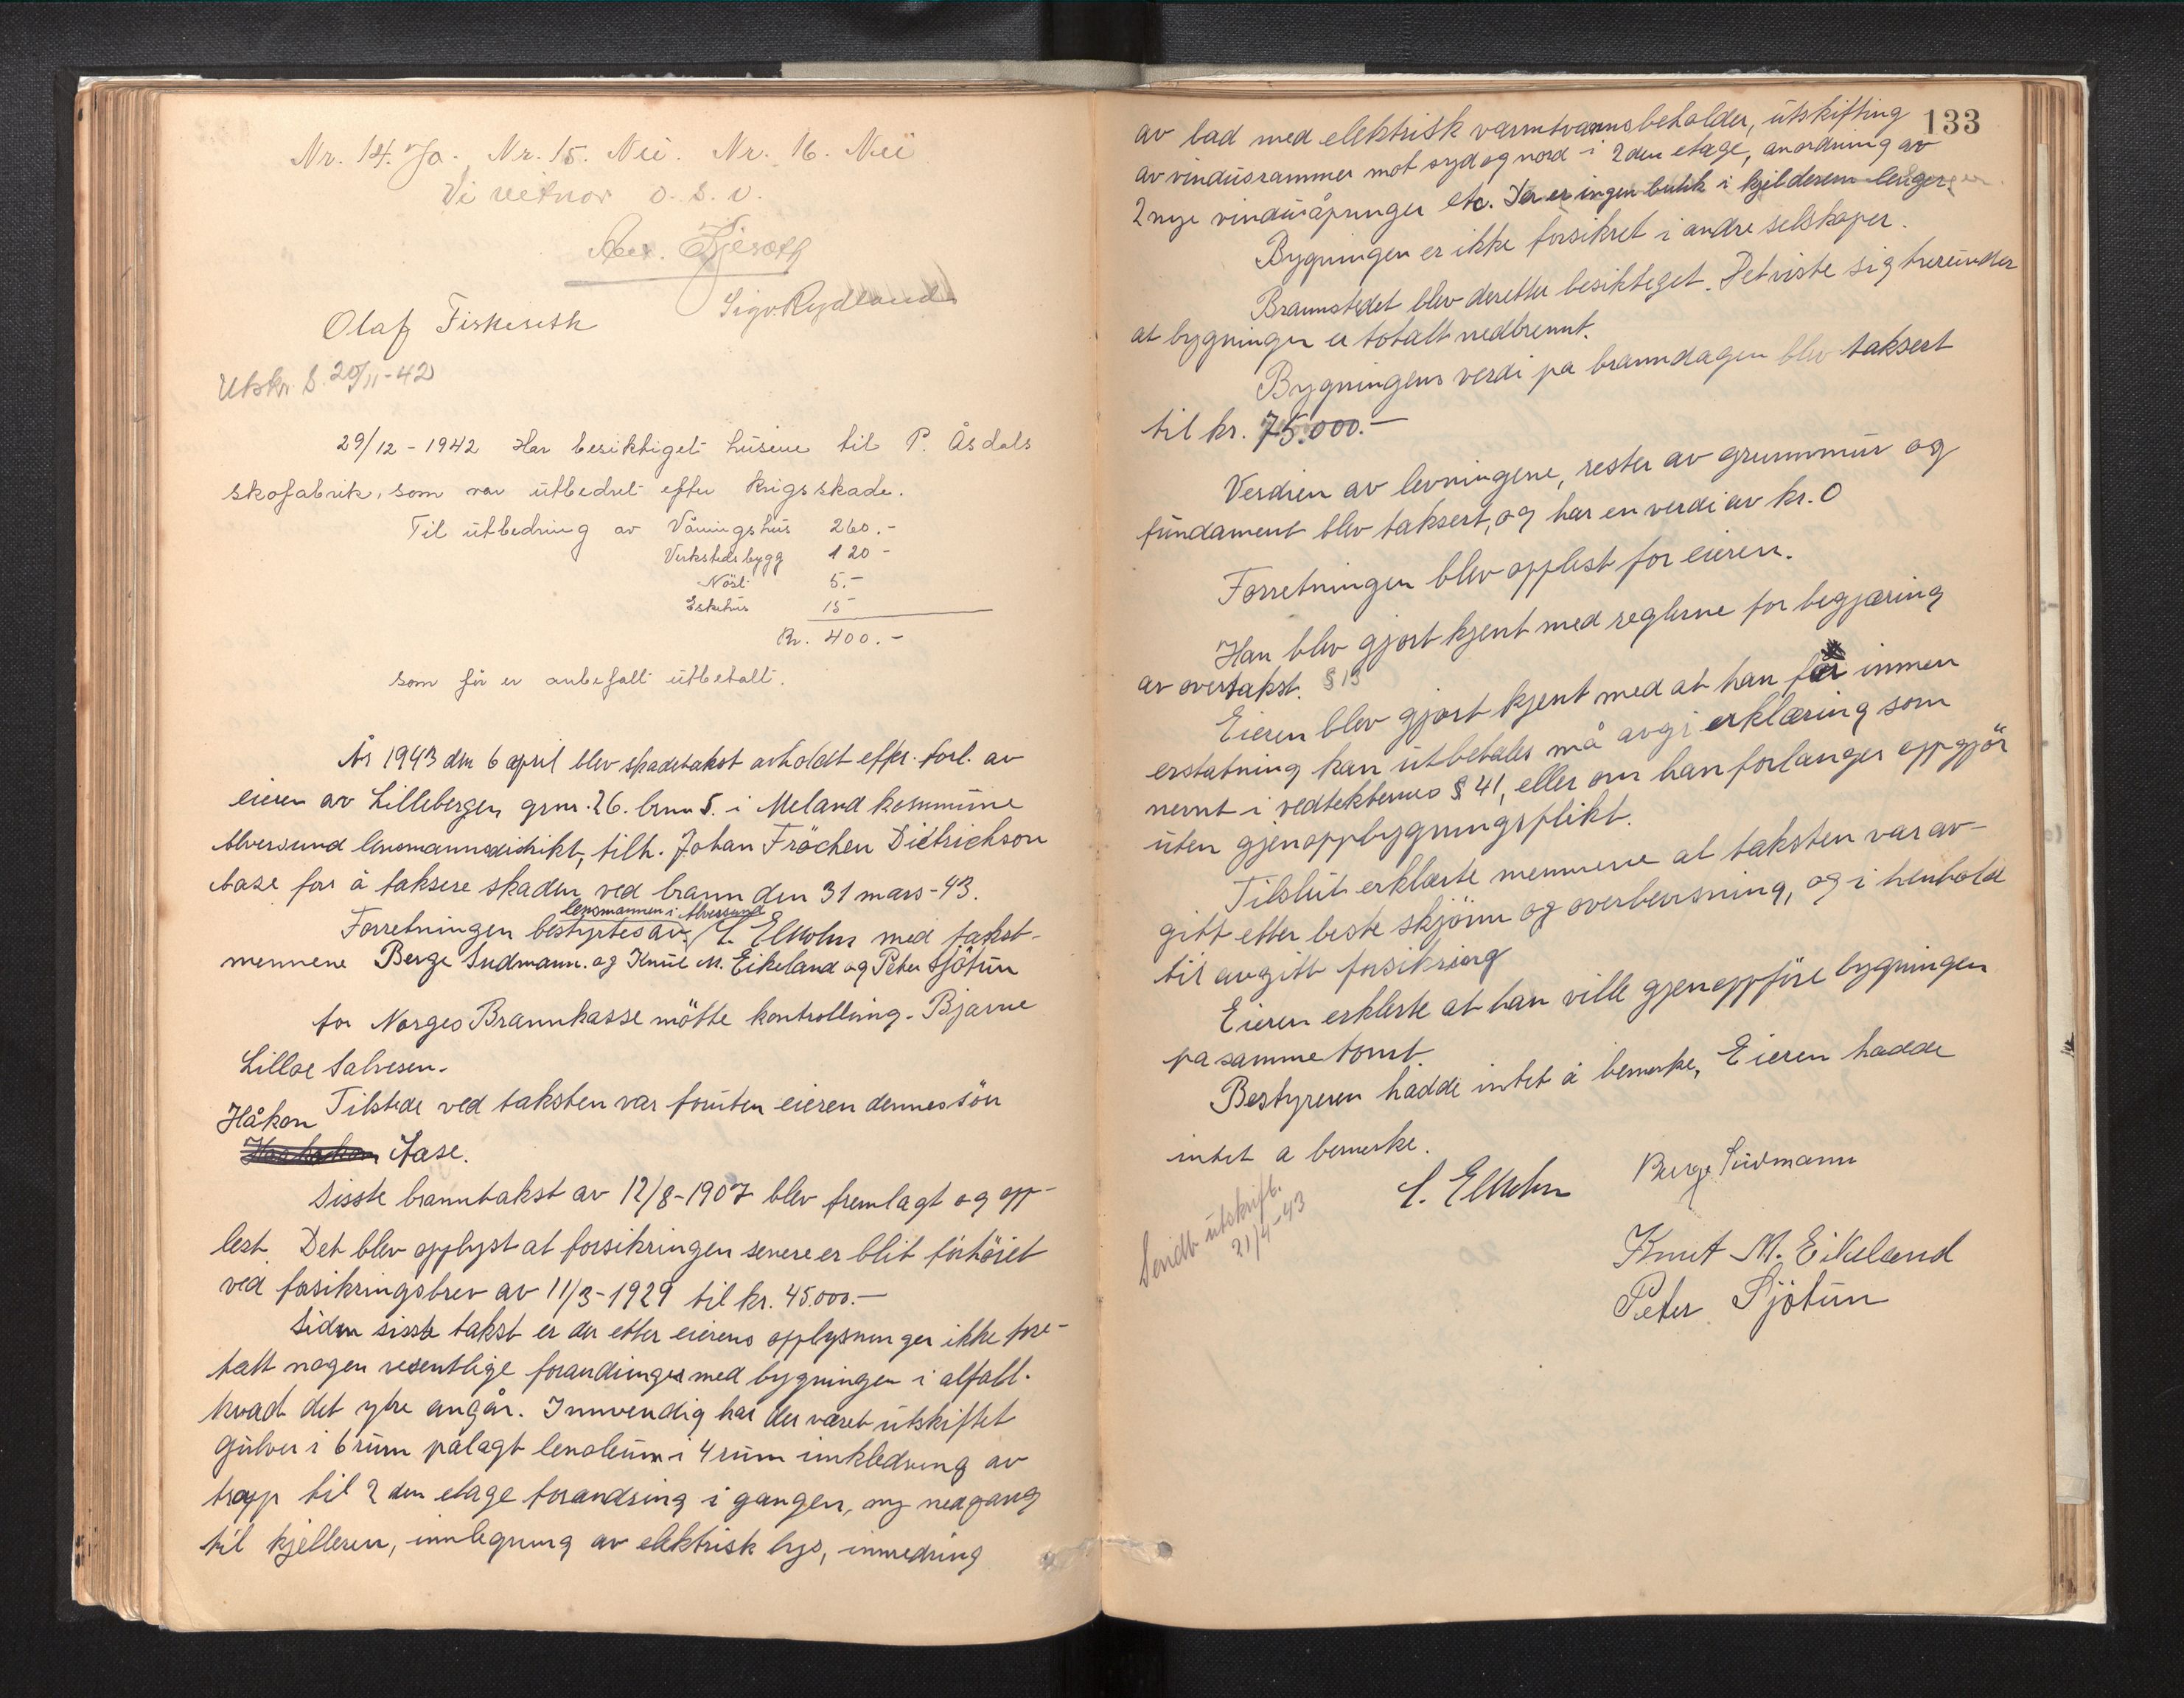 Nr. 14. Ja. Nr. 15. Nei. Nr. 16. Nei
Vi vitnor o. s. v.
Olaf Fiskeseth
Sigv. Rydland
Utskr. S. 20/11-42
29/12 - 1942 Har besiktiget husene til P. Åsdals
skofabrik, som var utbedret efter krigsskade.
Til utbedring av Våningshus 260.-
Verkstedsbygg 120 -
Nöst 5.-
Eskehus 15 -
Kr. 400.-
som för er anbefalt utbetalt.
År 1943 den 6 april blev skadetakst avholdt efter forl. av
eieren av Lillebergen, grnr. 26. brnr 5. i Meland kommune
Alversund lensmannsdistrikt, tilh. Johan Fröchen Dietrichson
Aase for å taksere skaden ved brann den 31 mars -43.
lensmannen i Alversund
Forretningen bestyrtes av E. Elholm med takst-
mennene Berge Sudmann. og Knut M. Eikeland og Peter Sjötun
for Norges Brannkasse mötte kontrolling. Bjarne
Lilloe Salvesen.
Tilstede ved taksten var foruten eieren dennes sön
Håkon Aase.
Sisste branntakst av 12/8-1907 blev fremlagt og opp-
lest. Det blev opplyst at forsikringen senere er blit forhöiet
ved forsikringsbrev av 11/3-1929 til kr. 45.000.-
Siden sisste takst er der etter eierens opplysninger ikke fore-
tatt nogen vesentlige forandringer med bygningen i alfall.
hvad det ytre angår. Innvendig har der været utskiftet
gulver i 6 rum pålagt lenoleum i 4 rum innkledning av
trapp til 2 den etage forandring i gangen, ny nedgang
til kjelleren, innlegning av elektrisk lys, innredning
133
av bad med elektrisk varmtvannsbeholder, utskifting
av vindusrammer mot syd og nord i 2den etage, anordning av
2 nye vindusåpninger etc. Der er ingen butik i kjelderen lenger.
Bygningen er ikke forsikret i andre selskaper.
Brannstedet blev deretter besikteget. Det viste sig herunder
at bygningen er totalt nedbrennt.
Bygningens verdi på branndagen blev taksert
til kr. 75.000.-
Verdien av levningene, rester av grunnmur og
fundament blev taksert, og har en verdi av kr. 0
Forretningen blev opplest for eieren.
Han blev gjort kjent med reglerne for begjæring
av overtakst. § 13
Eieren blev gjort kjent med at han för innen
erstatning kan utbetales må avgi erklæring som
nevnt i vedtekternes § 41, eller om han forlanger oppgjör
uten gjenoppbygningsplikt.
Tilslut erklærte mennene at taksten var av-
gitt etter beste skjönn og overbevisning, og i henhold
til avgitt forsikring
Eieren erklærte at han ville gjenoppföre bygningen
på samme tomt
Bestyreren hadde intet å bemerke, Eieren hadde
intet å bemerke.
E. Elholm Berge Sudmann
Knut M. Eikeland
Peter Sjötun
Sendt utskrift.
21/4-43